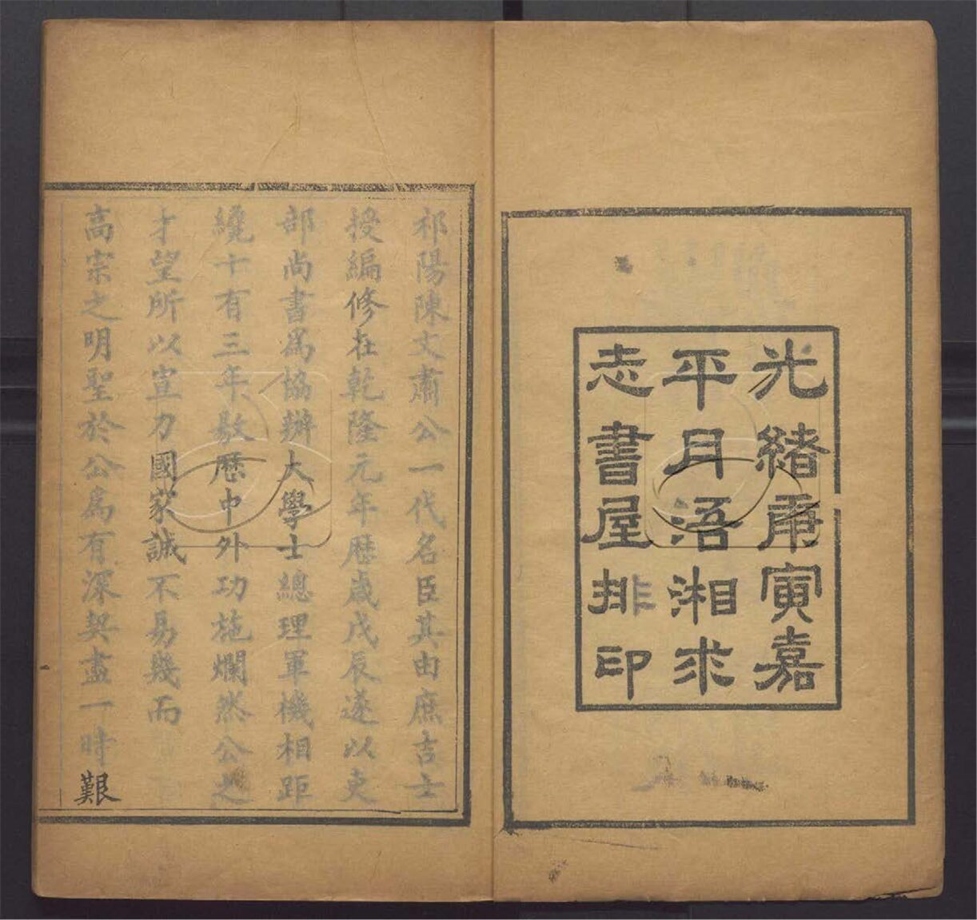 光緒庚寅嘉
平月浯湘求
志書屋排印
祁陽陳文肅公一代名臣其由庶吉士
授編修在乾隆元年歷歲戊辰遂以吏
部尚書爲協辦大學士總理軍機相距
纔十有三年敭歷中外功施爛然公之
才望所以宣力國家誠不易幾而
高宗之明聖於公爲有深契盡一時艱